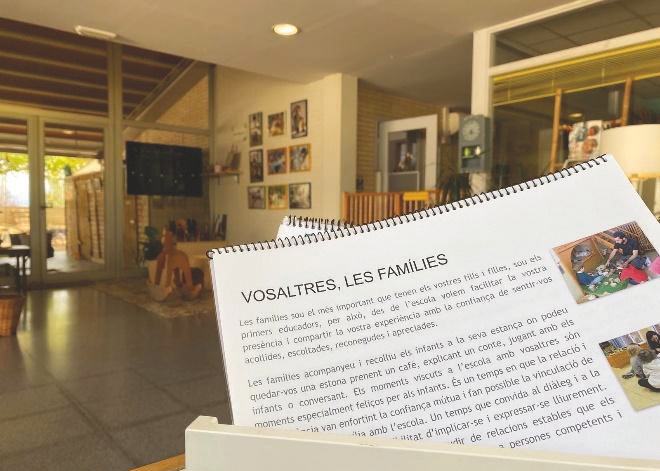 VOSALTRES, LES FAMÍLIES
Les famílies sou el més important que tenen els vostres fills i filles, sou els
primers educadors, per això, des de l'escola volem facilitar la vostra
presència i compartir la vostra experiència amb la confiança de sentir-vos
acollides, escoltades, reconegudes i apreciades.
Les famílies acompanyeu i recolliu els infants a la seva estança on podeu
quedar-vos una estona prenent un cafè, explicant un conte, jugant amb els
infants o conversant. Els moments viscuts a l'escola amb vosaltres són
moments especialment feliços per als infants. És un temps en que la relació i
van enfortint la confiança mútua i fan possible la vinculació de
amb l'escola. Un temps que convida al diàleg i a la
d'implicar-se i expressar-se lliurement.
de relacions estables que els
a persones competents i